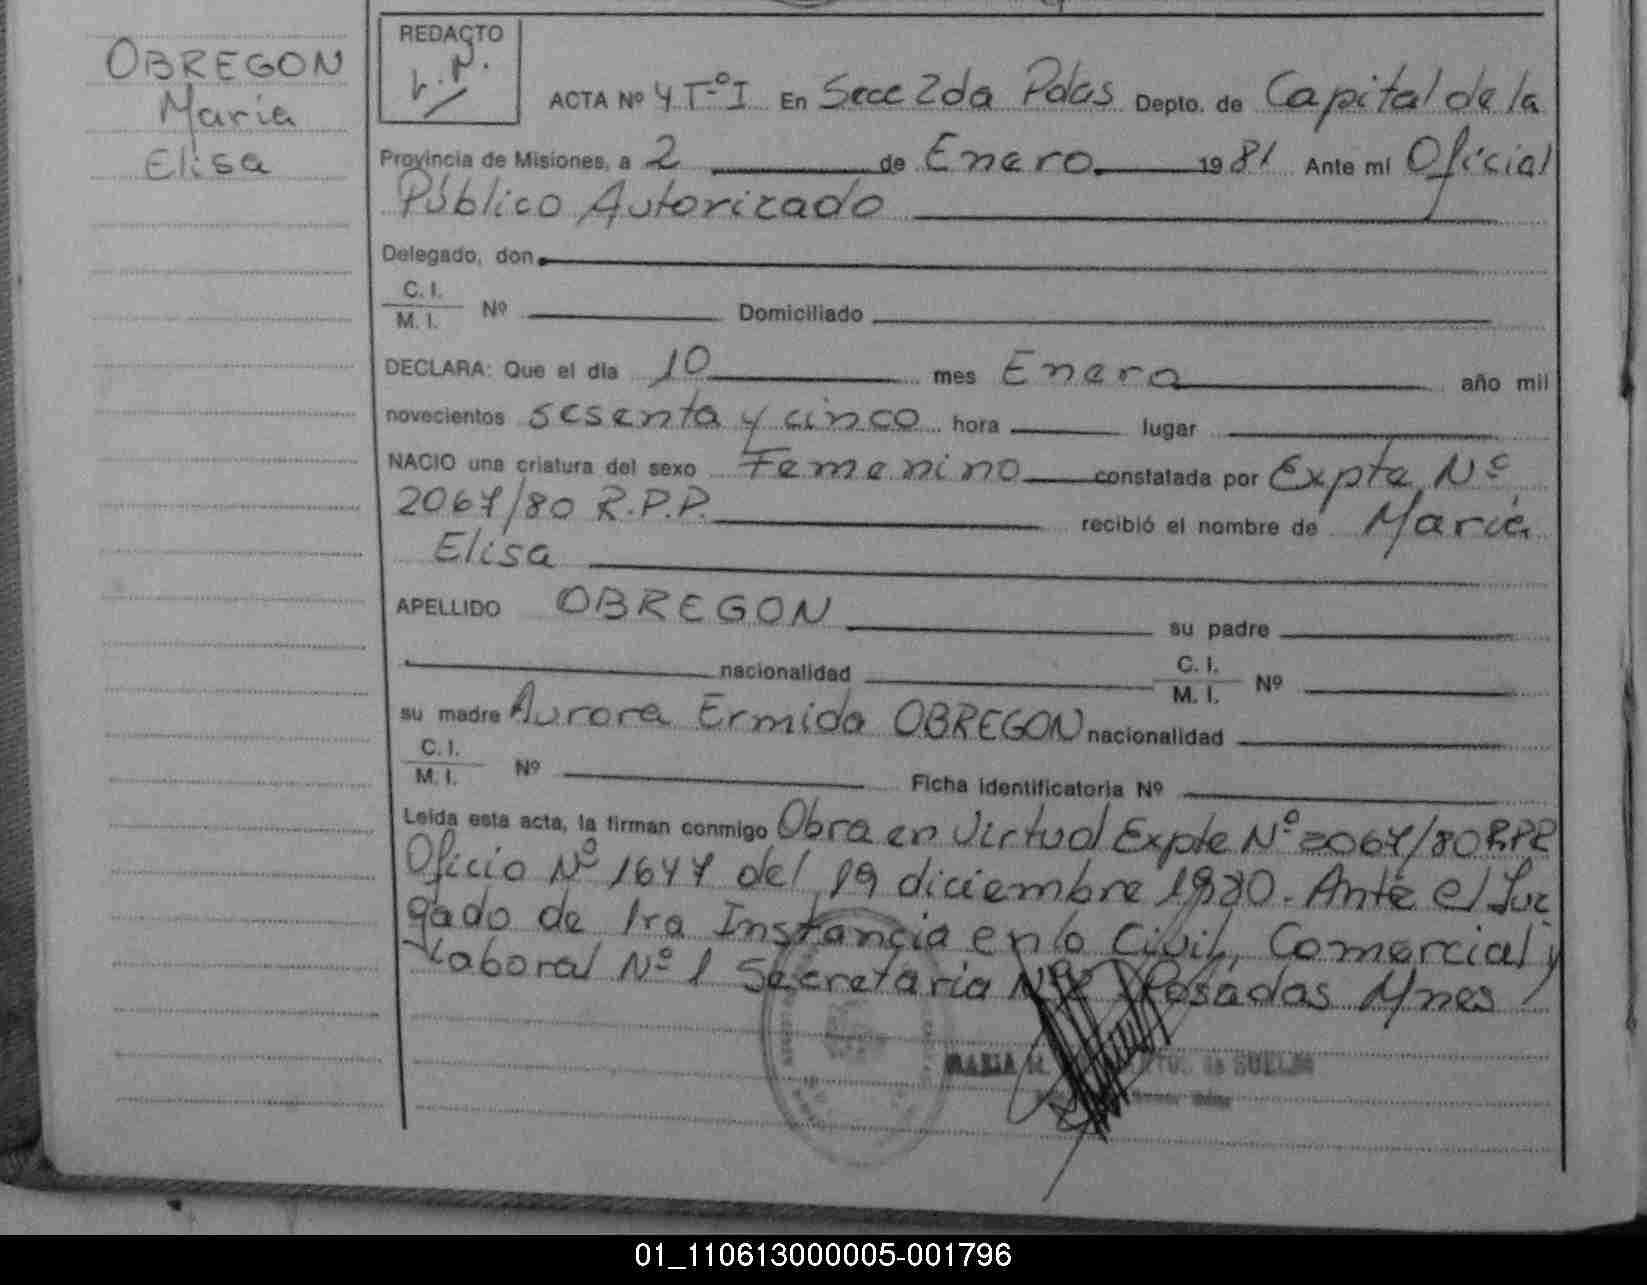 OBREGON
Maria
Elisa
REDACTO
ACTA Nº 4 Tº I En Secc 2da Pdas Depto. de Capital de la
Provincia de Misiones, a 2 de Enero 1981 Ante mi Oficial
Público Autorizado
Delegado, don
C. I.
M. I. Nº Domiciliado
DECLARA: Que el día 10 mes Enero año mil
novecientos sesenta y cinco hora lugar
NACIO una criatura del sexo Femenino constatada por Expte Nº
2067/80 R.P.P. recibió el nombre de Maria
Elisa
APELLIDO OBREGON su padre
nacionalidad C. I.
M. I. Nº
su madre Aurora Ermida OBREGON nacionalidad
C. I.
M. I. Nº Ficha identificatoria Nº
Leída esta acta, la firman conmigo Obra en Virtud Expte Nº 2067/80 RPP
Oficio Nº 1647 del 19 diciembre 1980. Ante el Juz
gado de 1ra Instancia en lo Civil, Comercial y
Laboral Nº 1 Secretaria Posadas Mnes
MARIA
01_110613000005-001796